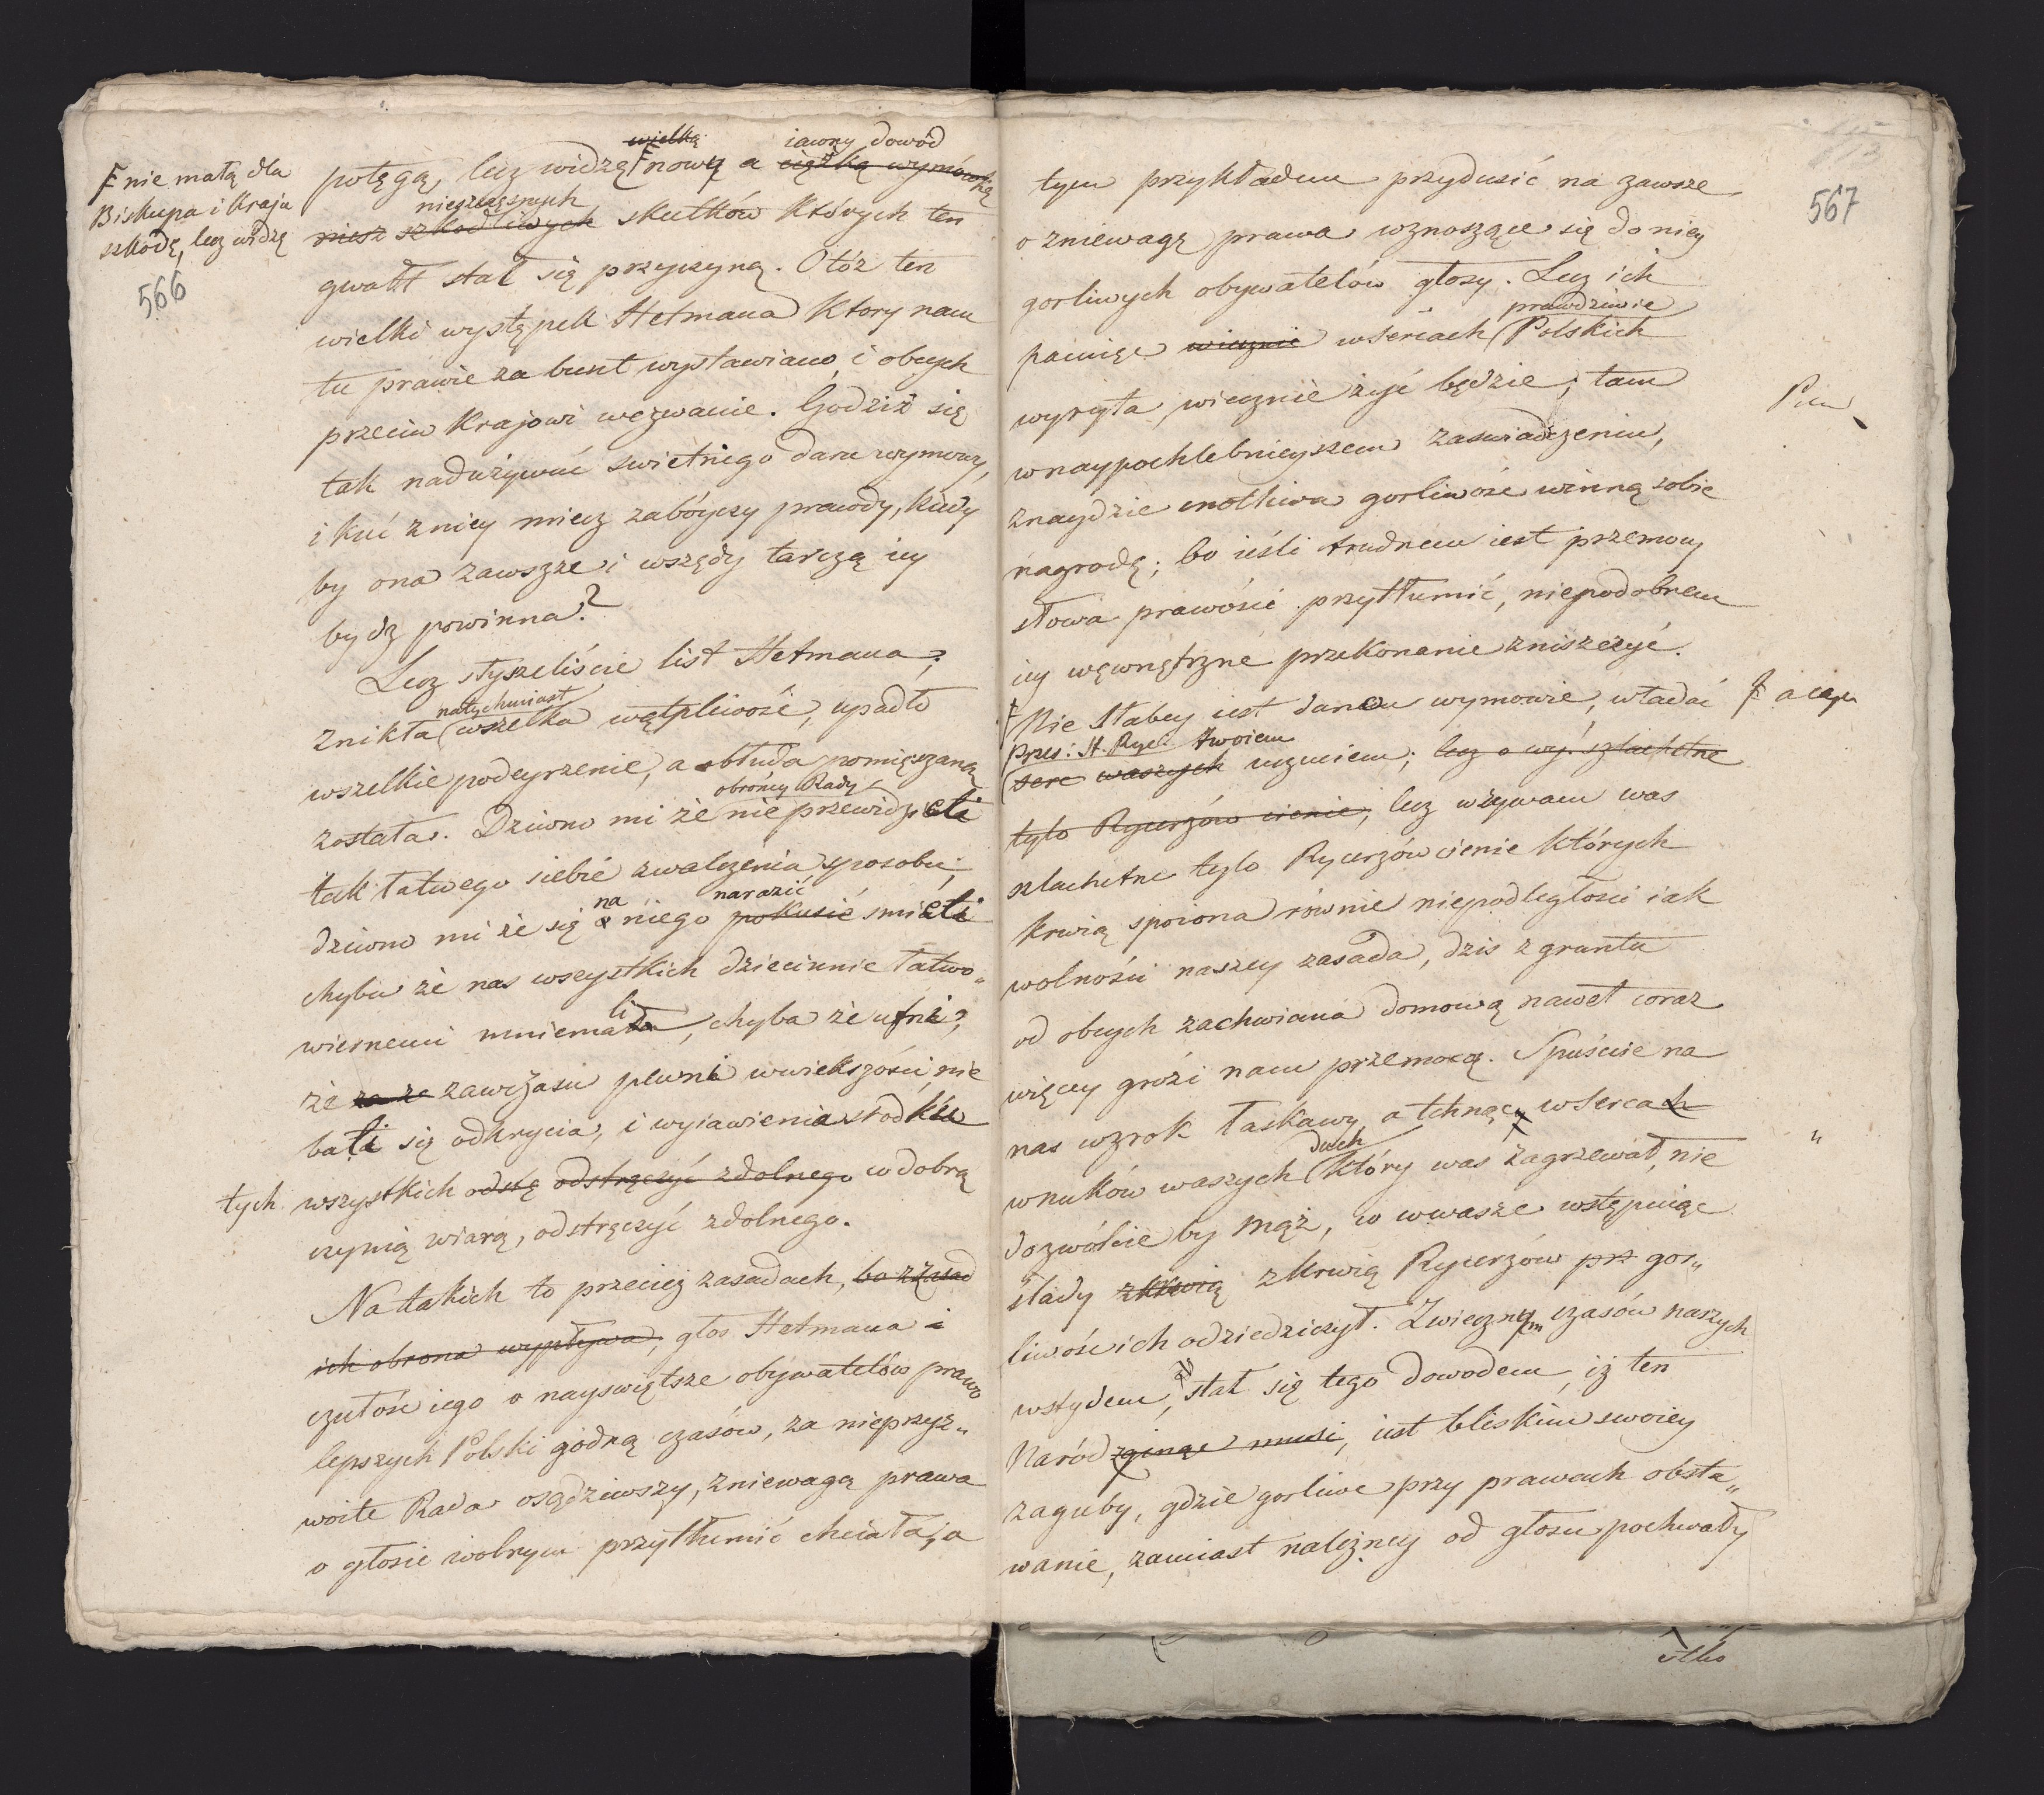 nie małą dla
Biskupa i Kraju
szkodę, lecz widzę
566
wielką iawny dowód
potęgą, lecz widzę nową a ciężką wymówkę
nieszczęsnych
niesz szkodliwych skutków których ten
gwałt stał się przyczyną. Otóż ten
wielki występek Hetmana który nam
tu prawie za bunt wystawiano, i obcych
przeciw Krajowi wezwanie. Godziż się
tak nadużywać swietnego daru wymowy,
i kuć z niey miecz zabóyczy prawdy, kiedy
by ona zawsze i wszędy tarczą iey
bydz powinna?
Lecz słyszeliście list Hetmana;
natychmiast
znikła wszelka wątpliwość, upadło
wszelkie podeyrzenie, a obłuda pomięszaną
obrońcy Rady
została. Dziwno mi że nie przewidzieli
tak łatwego siebie zwalczenia sposobu;
na narazić
dziwno mi że się o niego pokusić smieli
chyba że nas wszystkich dziecinnie łatwo„
li
wiernemi mniemała, chyba że ufni,
że za ze zawczasu pewni większości, nie
bali się odkrycia, i wyiawienia srodków
tych wszystkich odstę odstręczyć zdolnego w dobrą
czynią wiarą, odstręczyć zdolnego.
Na takich to przecież zasadach, bo z zasad
ich obrona wypływa, głos Hetmana i
czułość iego o nayswiętsze obywatelów prawo
lepszych Polski godną czasów, za nieprzyz„
woite Rada osądziwszy, zniewagą prawa
o głosie wolnym przytłumić chciała, a
567
tym przykładem przydusić na zawsze
o zniewagę prawa wznoszące się do niey
gorliwych obywatelów głosy. Lecz ich
prawdziwie
pamięć wiecznie w sercach Polskich
wyryta, wiecznie żyć będzie; tam
w naypochlebnieyszem zaswiadczeniu,
znaydzie cnotliwa gorliwość winną sobie
nagrodę; bo ieśli trudnem iest przemocy
słowa prawości przytłumić, niepodobnem
iey wewnętrzne przekonanie zniszczyć.
Nie słabey iest danem wymowie, władać
Przes: St. Ryc: twoiem
serc waszych uczuciem; lecz o wy! szlachetne
tylo Rycerzów cienie, lecz wzywam was
szlachetne tylo Rycerzów cienie których
krwią spoiona równie niepodległości iak
wolności naszey zasada, dzis z gruntu
od obcych zachwiana domową nawet coraz
więcey grozi nam przemocą. Spuśćcie na
nas wzrok łaskawy, a tchnąc w sercach
duch
wnuków waszych który was zagrzewał, nie
dozwólcie by mąż, co w wasze wstępuiąc
slady z krwią z krwią Rycerzów prz gor„
liwość ich odziedziczył. Z wiecznym czasów naszych
wstydem, stał się tego dowodem, iż ten
Naród zginąć musi, iest bliskim swoiey
zaguby, gdzie gorliwe przy prawach obsta„
wanie, zamiast należney od głosu pochwały